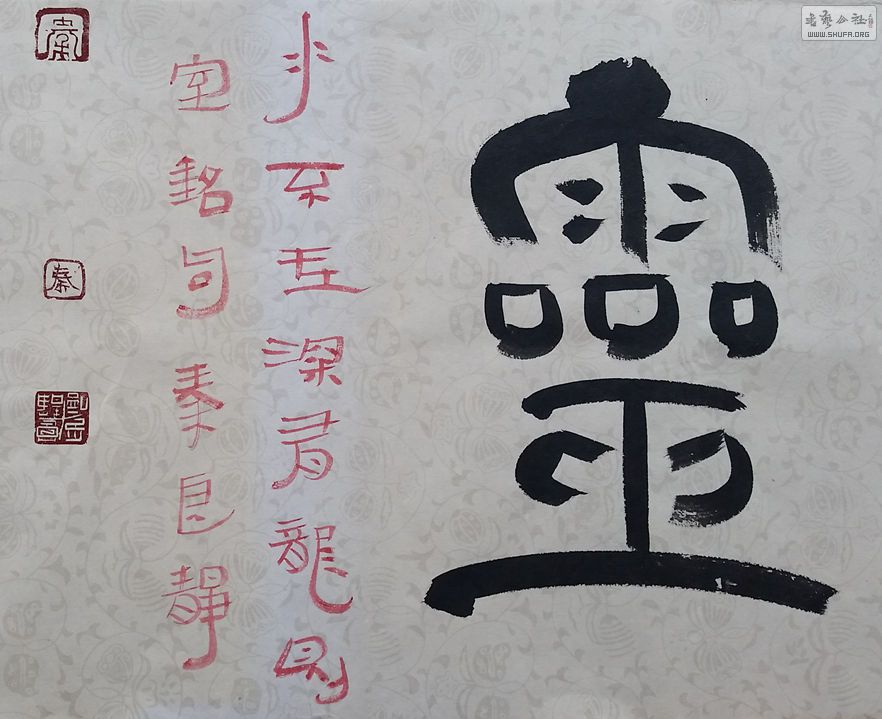 靈
水不在深有龍則
室銘句秦良靜
秦
書藝公社
WWW.SHUFA.ORG